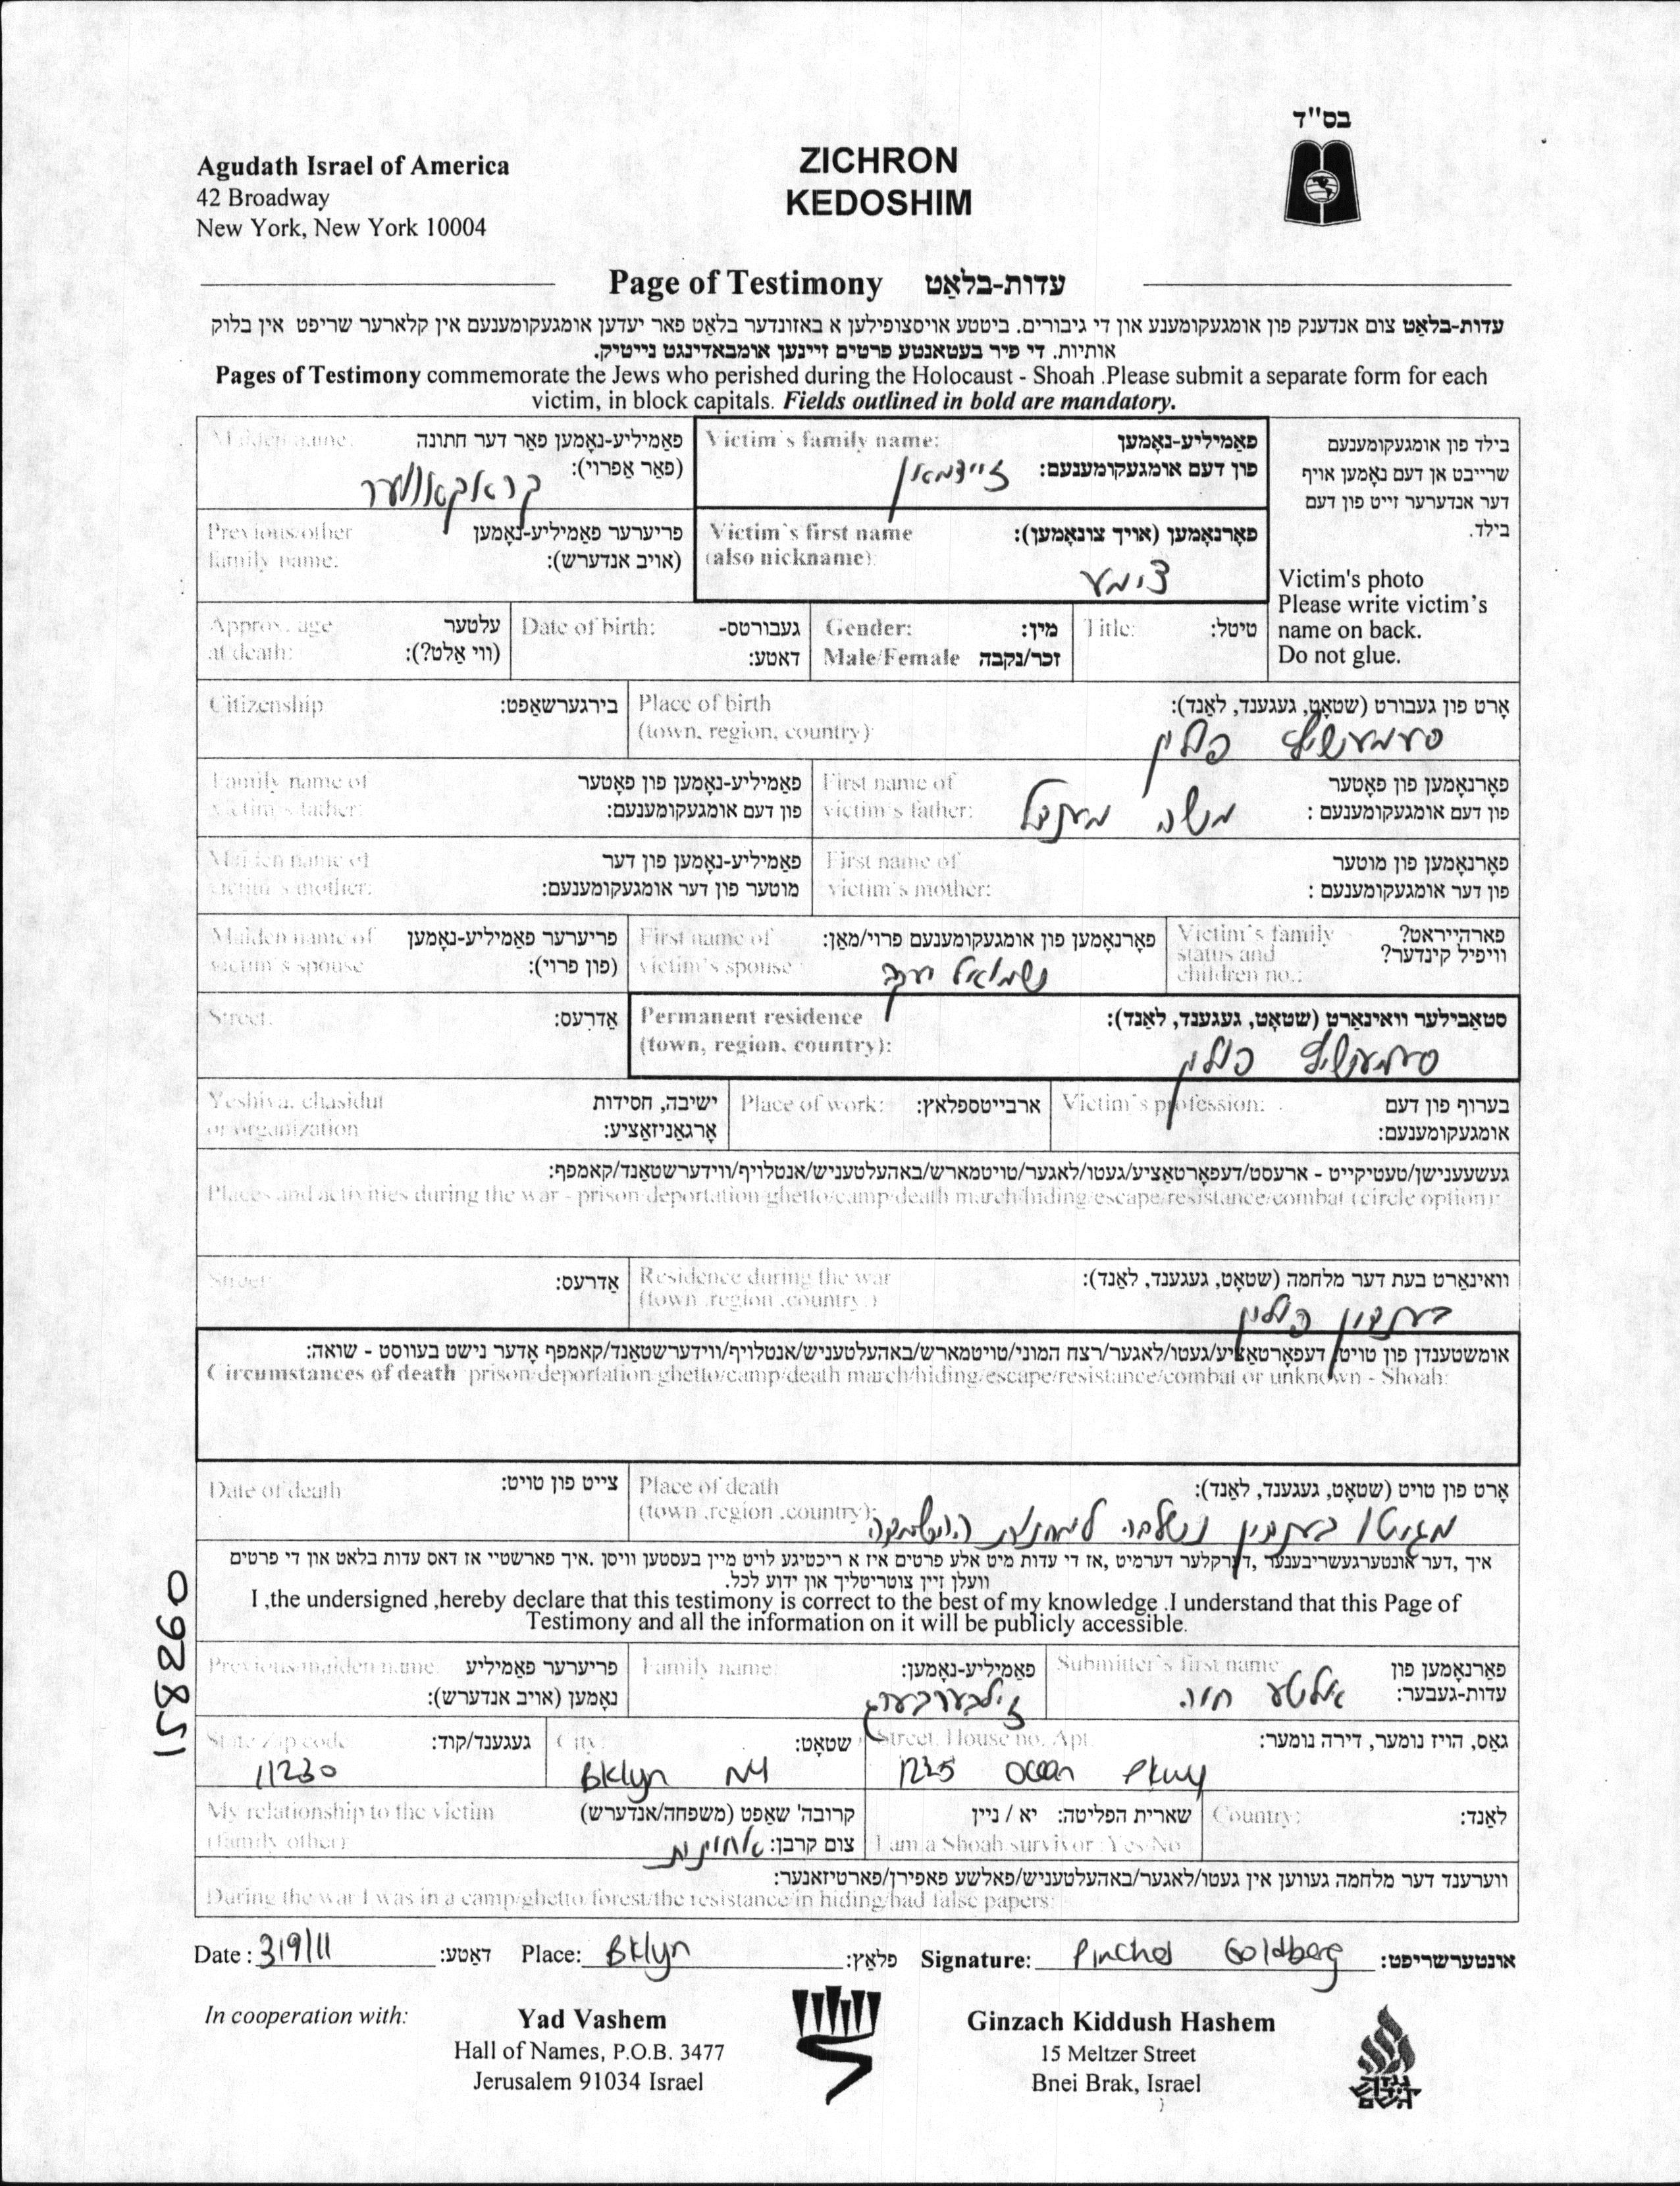 בס"ד
Agudath Israel of America
42 Broadway
New York, New York 10004
ZICHRON
KEDOSHIM
Page of Testimony עדות-בלאַט
עדות-בלאַט צום אנדענק פון אומגעקומענע און די גיבורים. ביטע אויסצופילען א באזונדער בלאט פאר יעדען אומגעקומענעם אין קלארער שריפט אין בלוק
אותיות. די פיר בעטאנטע פרטים זיינען אומבאדינגט נייטיק.
Pages of Testimony commemorate the Jews who perished during the Holocaust - Shoah .Please submit a separate form for each
victim, in block capitals. Fields outlined in bold are mandatory.
Maiden name: פאַמיליע-נאָמען פאַר דער חתונה
(פאַר אַפרוי):
Victim's family name: פאַמיליע-נאָמען
פון דעם אומגעקומענעם: זיידמאן
בילד פון אומגעקומענעם
שרייבט אן דעם נאָמען אויף
דער אנדערער זייט פון דעם
בילד.
Victim's photo
Please write victim's
name on back.
Do not glue.
Previous/other פריערער פאַמיליע-נאָמען
family name: (אויב אנדערש):
Victim's first name פאָרנאָמען (אויך צונאָמען):
(also nickname)
צימע
Approx. age עלטער
at death: (ווי אַלט?):
Date of birth: געבורטס-
דאטע:
Gender: מין:
Male/Female זכר/נקבה
Title: טיטל:
Citizenship בירגערשאַפט:
Place of birth אָרט פון געבורט (שטאָט, געגענד, לאַנד):
(town, region, country)
פולין
Family name of פאַמיליע-נאָמען פון פאָטער
victim's father: פון דעם אומגעקומענעם:
First name of פאָרנאָמען פון פאטער
victim's father: פון דעם אומגעקומענעם :
משה מענדל
Maiden name of פאַמיליע-נאָמען פון דער
victim's mother: מוטער פון דער אומגעקומענעם:
First name of פאָרנאָמען פון מוטער
victim's mother: פון דער אומגעקומענעם :
Maiden name of פריערער פאַמיליע-נאָמען
victim's spouse (פון פרוי):
First name of פאָרנאָמען פון אומגעקומענעם פרוי/מאַן:
victim's spouse
יעקב
Victim's family פארהייראט?
status and וויפיל קינדער?
children no.:
Street: אַדרעס:
Permanent residence סטאַבילער וואינאַרט (שטאָט, געגענד, לאַנד):
(town, region, country):
פולין
Yeshiva, chasidut ישיבה, חסידות
or organization אָרגאַניזאַציע:
Place of work: ארבייטספלאַץ:
Victim's profession: בערוף פון דעם
אומגעקומענעם:
געשעענישן/טעטיקייט - ארעסט/דעפאָרטאַציע/געטו/לאגער/טויטמארש/באהעלטעניש/אנטלויף/ווידערשטאַנד/קאמפף:
Places and activities during the war - prison/deportation/ghetto/camp/death march/hiding/escape/resistance/combat (circle option):
Street: אַדרעס:
Residence during the war וואינאַרט בעת דער מלחמה (שטאָט, געגענד, לאַנד):
(town .region .country.)
בענדין פולין
אומשטענדן פון טויט: דעפאָרטאַציע/געטו/לאגער/רצח המוני/טויטמארש/באהעלטעניש/אנטלויף/ווידערשטאַנד/קאמפף אָדער נישט בעווסט - שואה:
Circumstances of death prison/deportation/ghetto/camp/death march/hiding/escape/resistance/combat or unknown - Shoah:
Date of death צייט פון טויט:
Place of death אָרט פון טויט (שטאָט, געגענד, לאַנד):
(town .region .country):
מגיטו בענדין נשלחה למחנות ההשמדה
איך ,דער אונטערגעשריבענער ,דערקלער דערמיט ,אז די עדות מיט אלע פרטים איז א ריכטיגע לויט מיין בעסטען וויסן .איך פארשטיי אז דאס עדות בלאט און די פרטים
וועלן זיין צוטריטליך און ידוע לכל.
I ,the undersigned ,hereby declare that this testimony is correct to the best of my knowledge .I understand that this Page of
Testimony and all the information on it will be publicly accessible.
Previous/maiden name: פריערער פאַמיליע
נאָמען (אויב אנדערש):
Family name: פאַמיליע-נאָמען:
זילבערבערג
Submitter's first name פאַרנאָמען פון
עדות-געבער: חוה
State Zip code געגענד/קוד:
11230
City: שטאָט:
Bklyn NY
Street, House no, Apt. גאַס, הויז נומער, דירה נומער:
1225 Ocean Pkwy
My relationship to the victim קרובה' שאַפט (משפחה/אנדערש)
(family/other) צום קרבן: אחיינית
שארית הפליטה: יא / ניין
I am a Shoah survivor: Yes/No
Country: לאַנד:
ווערענד דער מלחמה געווען אין געטו/לאגער/באהעלטעניש/פאלשע פאפירן/פארטיזאנער:
During the war I was in a camp/ghetto/forest/the resistance/in hiding/had false papers:
Date : 3/9/11 דאַטע: Place: Bklyn פלאַץ: Signature: Pinchos Goldberg אונטערשריפט:
In cooperation with:
Yad Vashem
Hall of Names, P.O.B. 3477
Jerusalem 91034 Israel
Ginzach Kiddush Hashem
15 Meltzer Street
Bnei Brak, Israel
158260